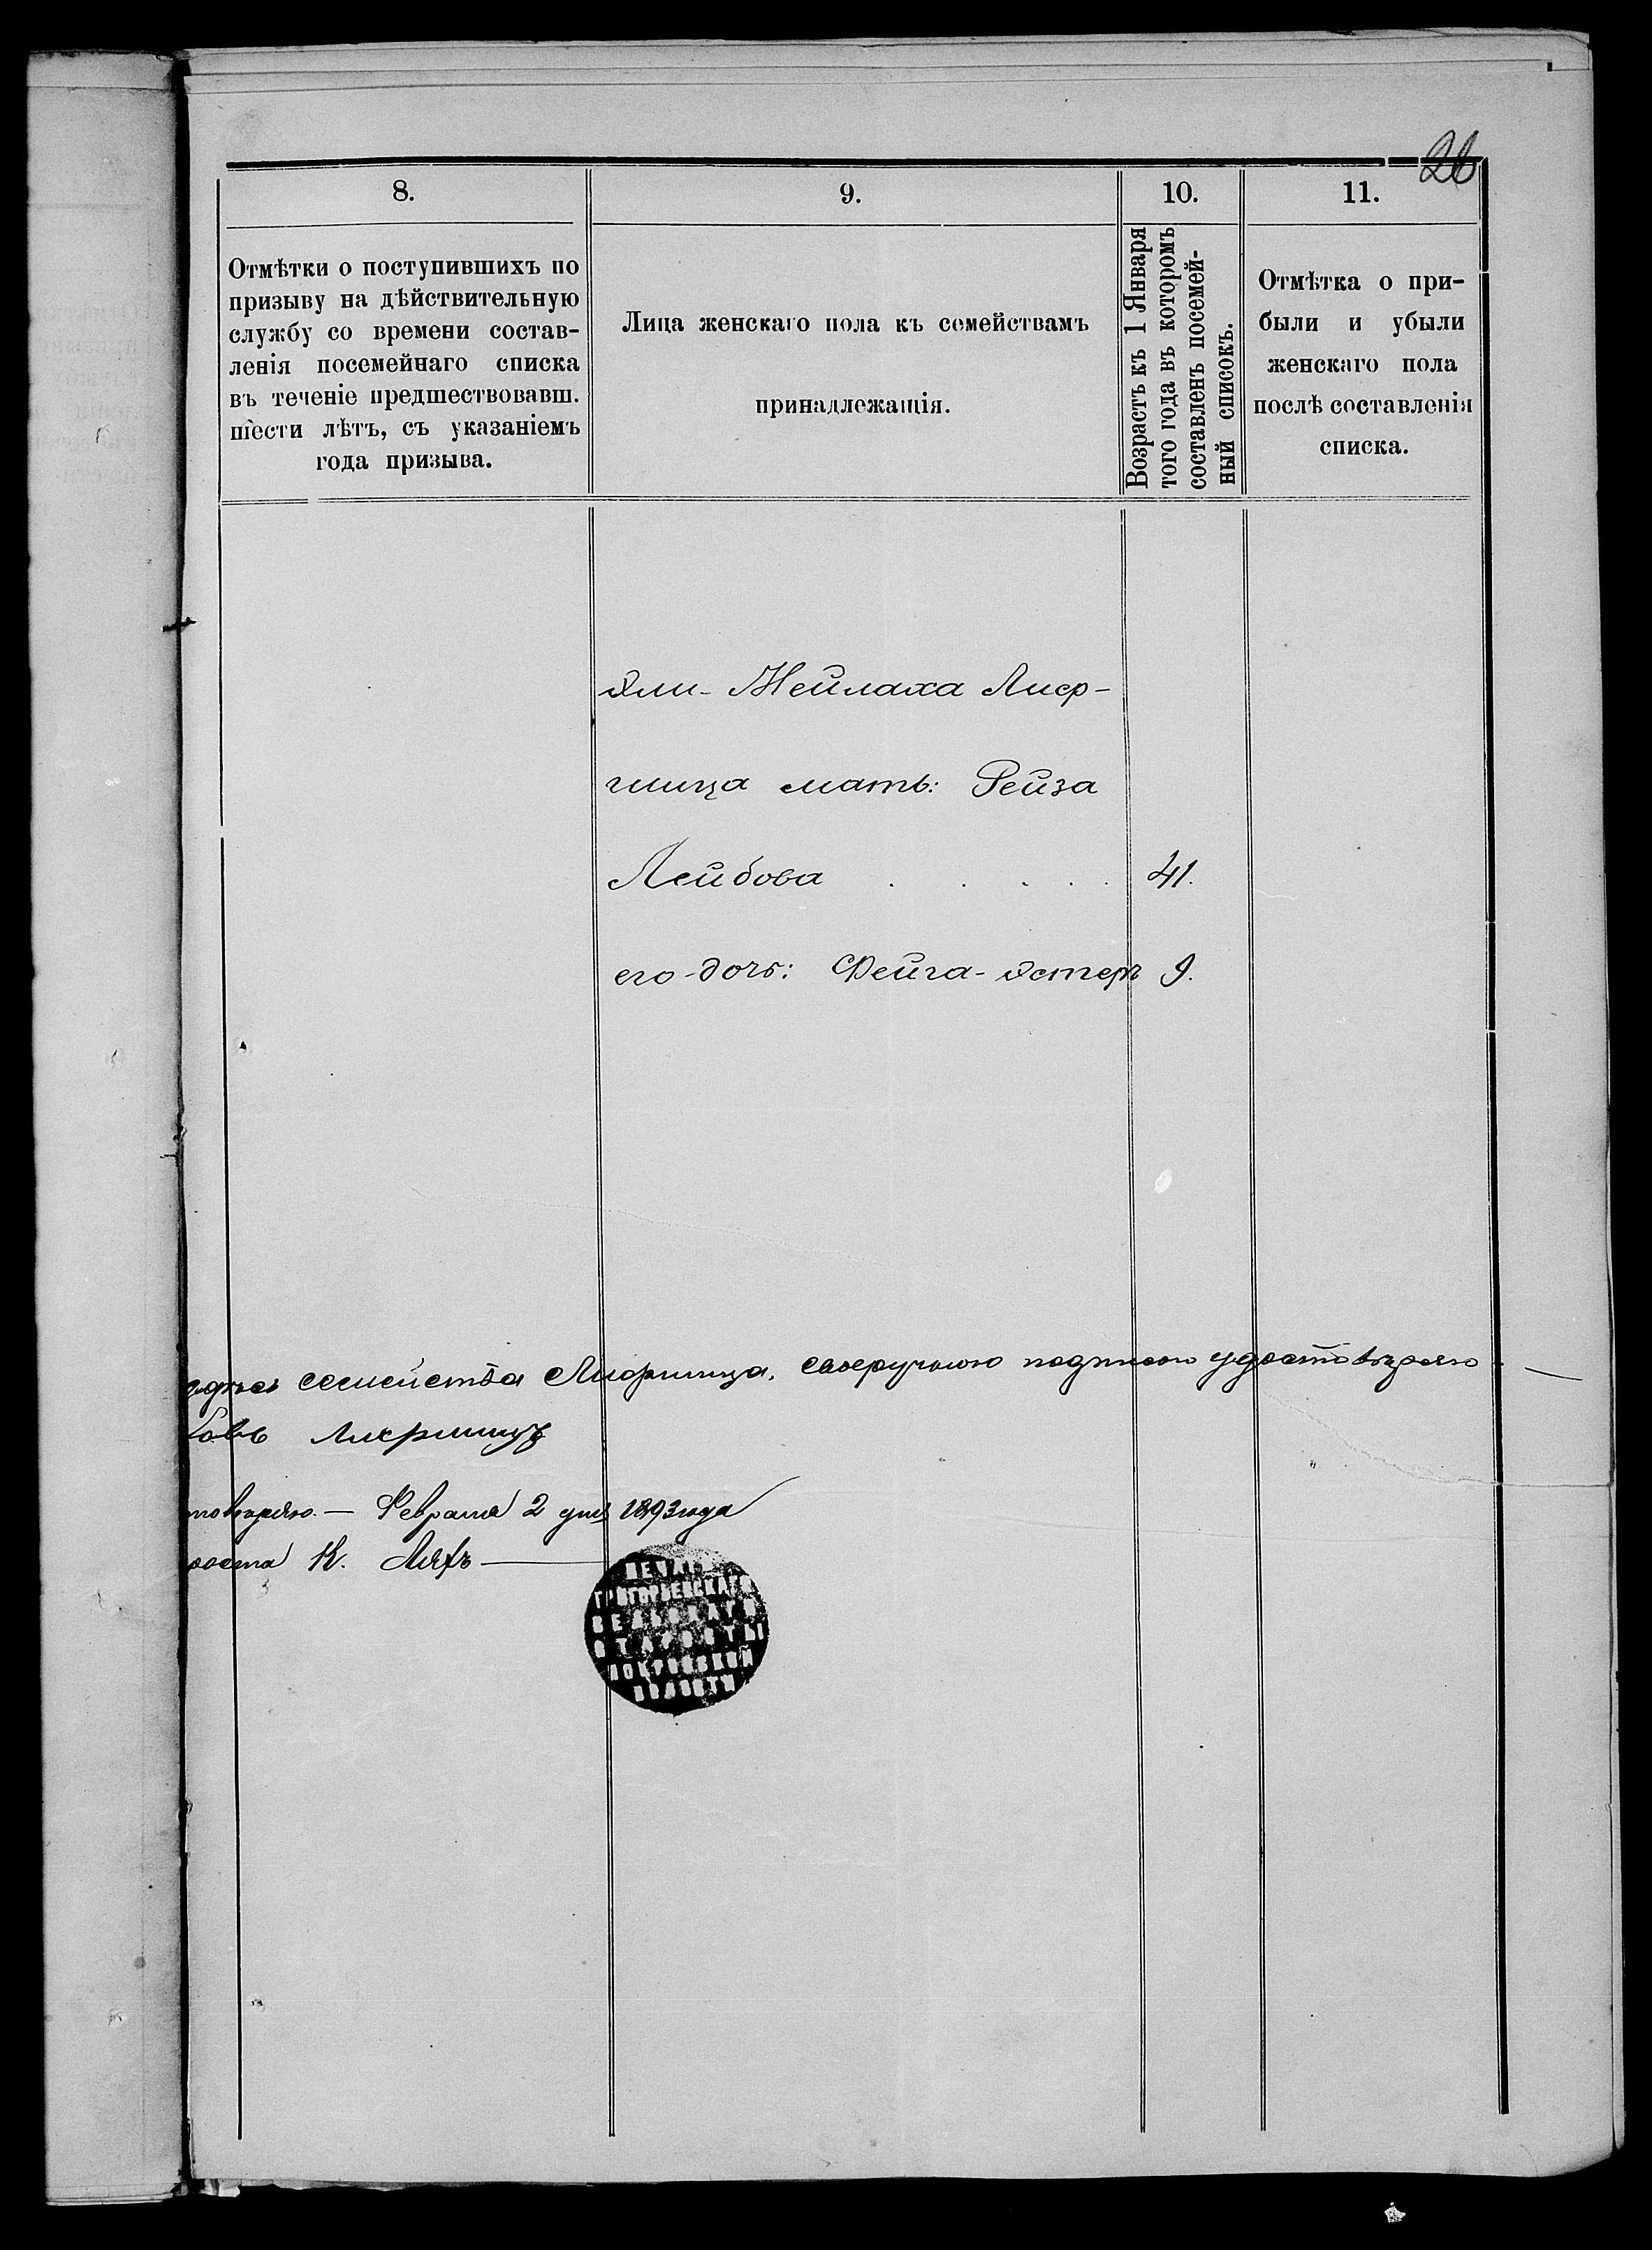 26
8.
9.
10.
11.
Отмѣтки о поступившихъ по
призыву на дѣйствительную
службу со времени состав-
ленія посемейнаго списка
въ теченіе предшествовавш.
шести лѣтъ, съ указаніемъ
года призыва.
Лица женскаго пола къ семействамъ
принадлежащія.
Возрастъ къ 1 Января
того года въ которомъ
составленъ посемей-
ный списокъ.
Отмѣтка о при-
были и убыли
женскаго пола
послѣ составленія
списка.
Эли-Мейлаха Лиср-
мица мать: Рейза
Лейбова . . . . . 41.
его-дочь: Фейга-Эстеръ 9.
семейства своеручною подписью удостовѣряю
Февраля 2 дня 1893 года
К. Ляхъ
ПЕЧАТЬ
ГРИГОРЬЕВСКАГО
СЕЛЬСКАГО
СТАРОСТЫ
ПОКРОВСКОЙ
ВОЛОСТИ